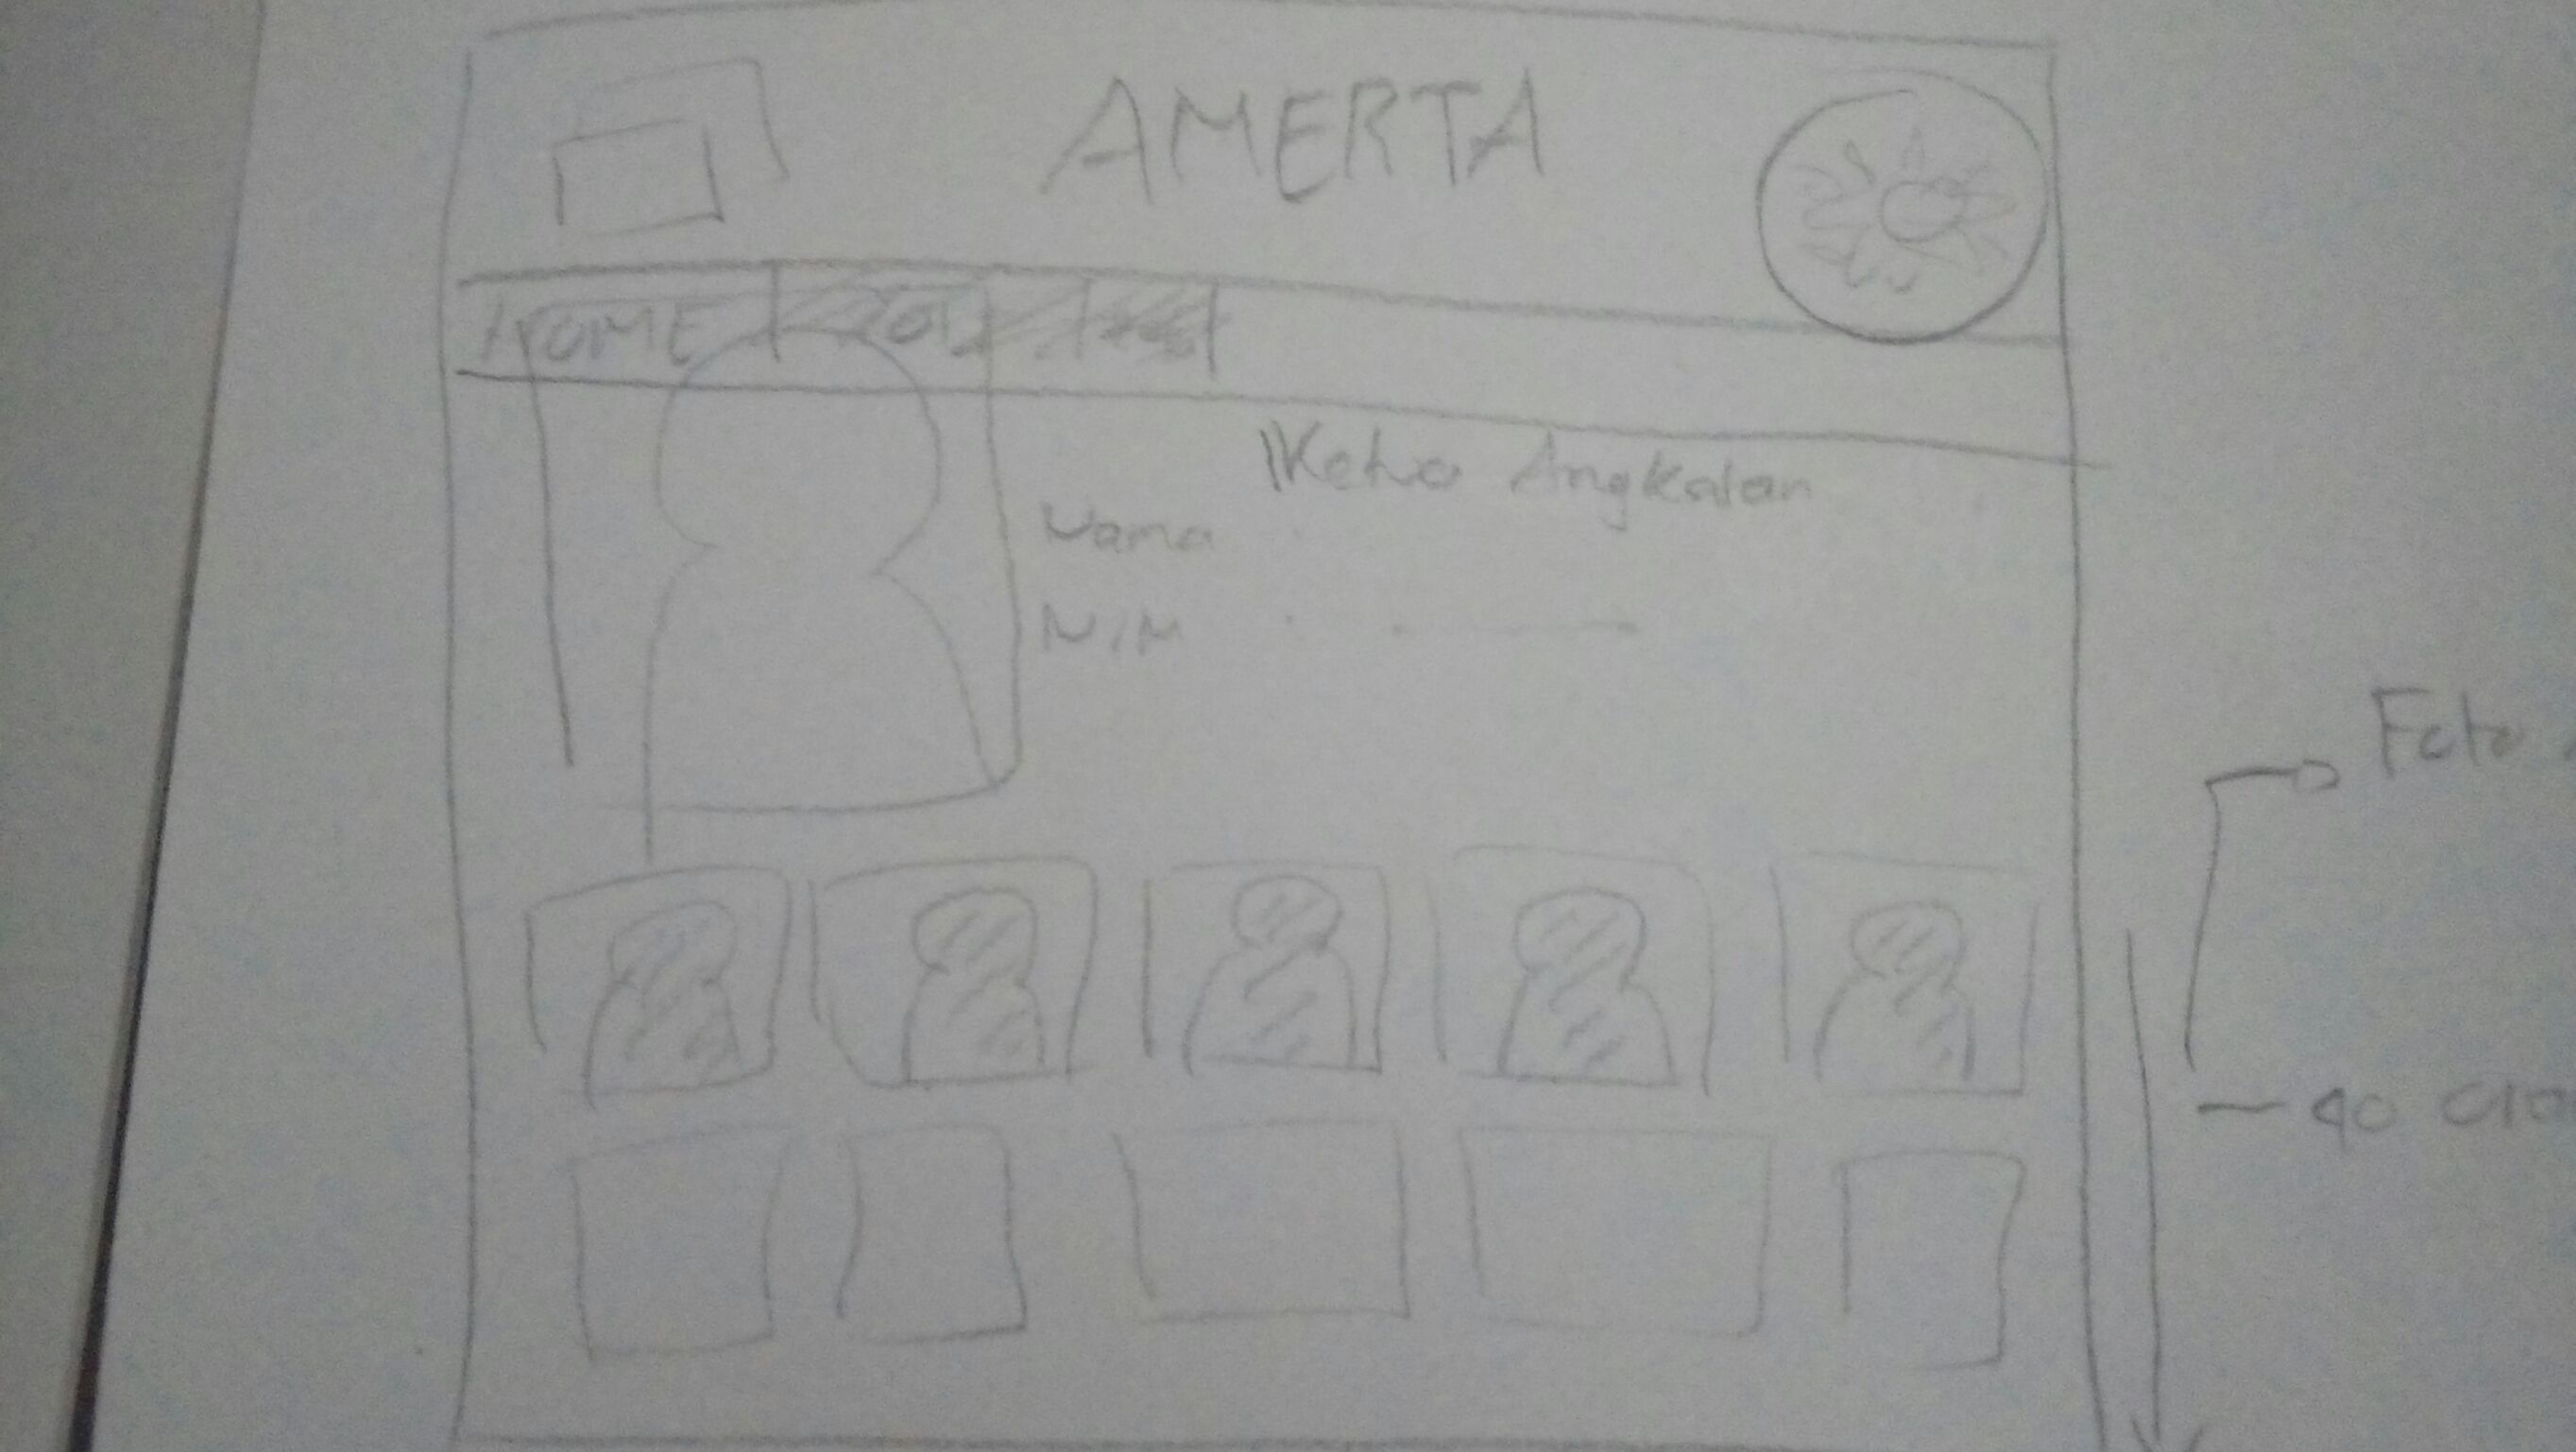 AMERTA
HOME
Ketua Angkatan
Nama :
NIM :
Foto
- 40